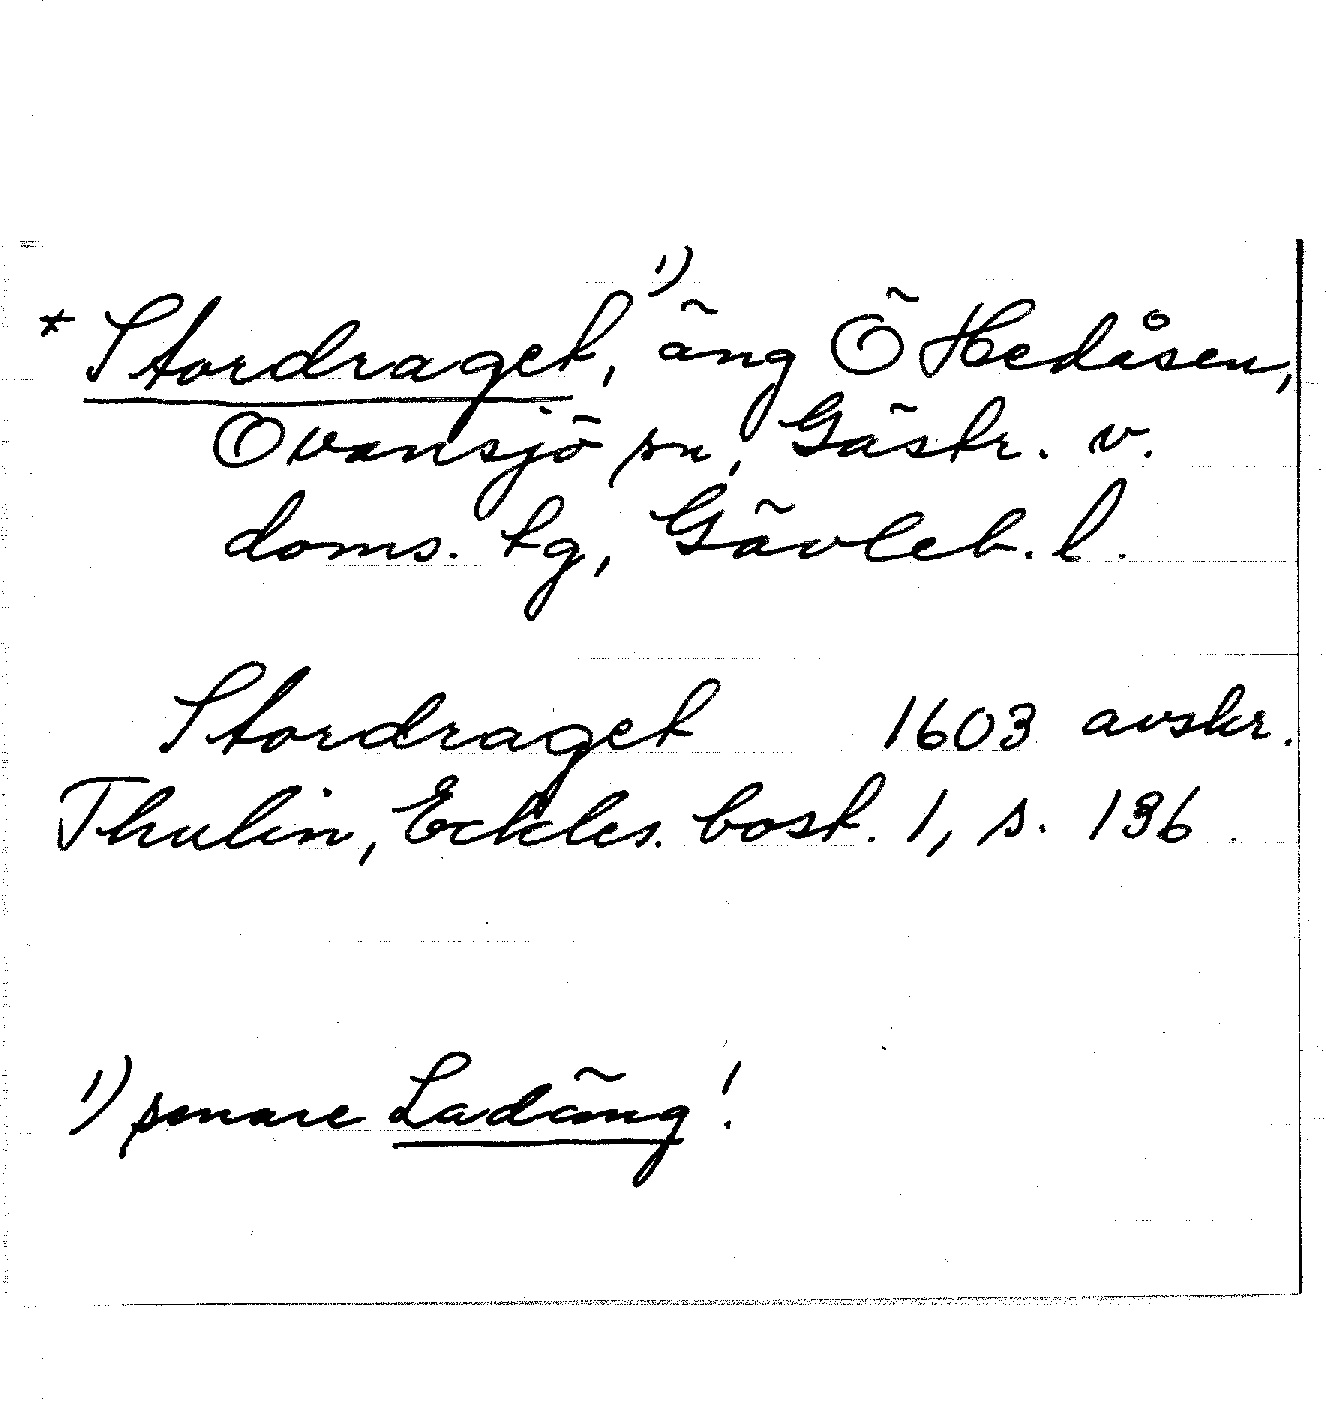 * Stordraget, 1) äng Ö Hedåsen,
Ovansjö sn, Gästr. v.
doms. tg, Gävleb. l.
Stordraget 1603 avskr.
Thulin, Eckles. bost. 1, s. 136.
1) senare Ladäng!